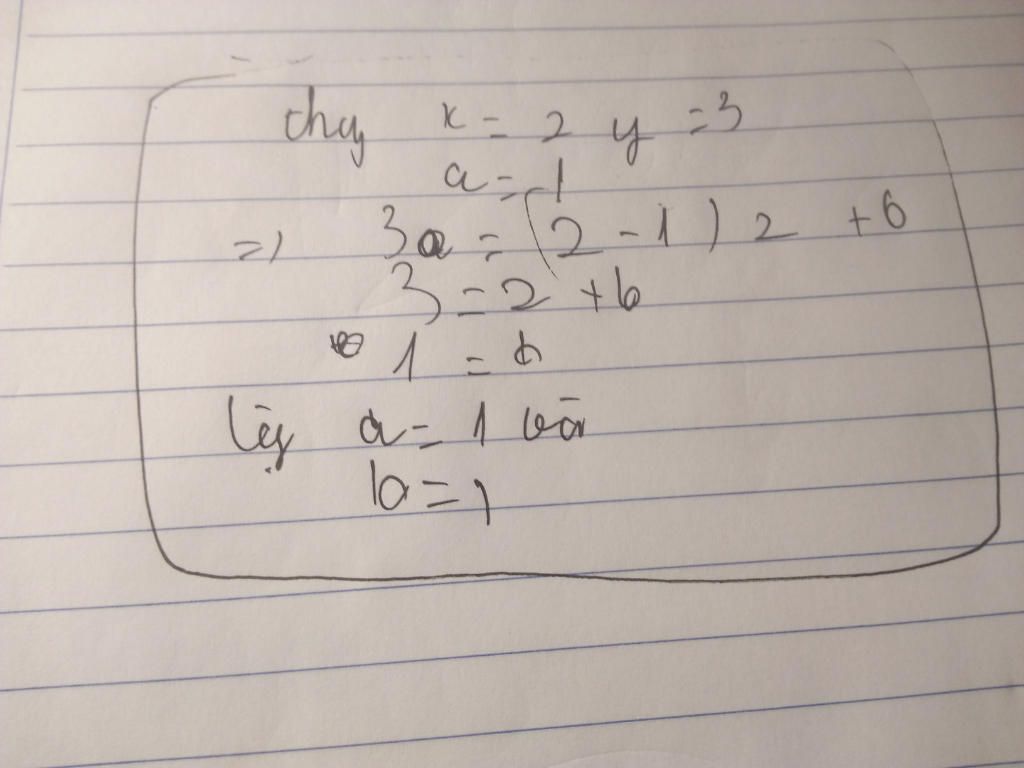 thay x = 2 y = 3
a = 1
=) 3a = (2 - 1) 2 + b
3 = 2 + b
1 = b
Vậy a = 1 và
b = 1